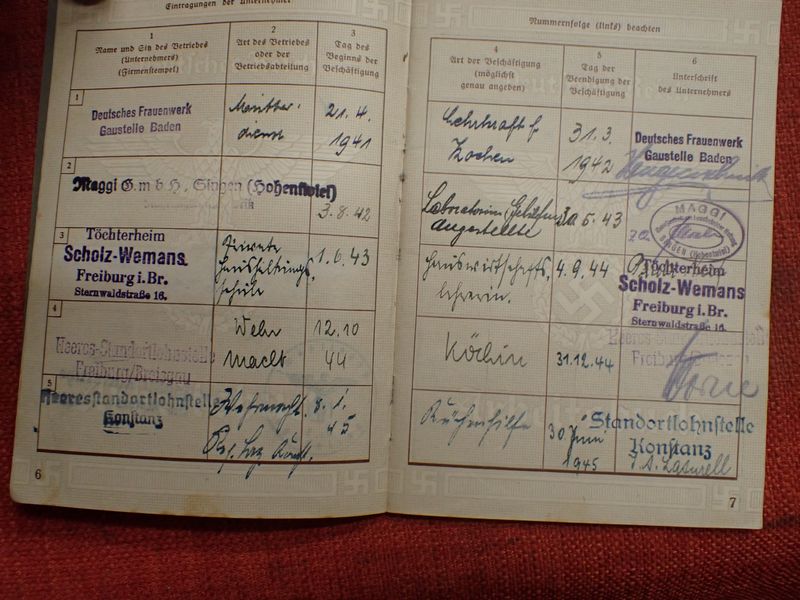 Eintragungen der Unternehmer
1
Name und Sitz des Betriebes
(Unternehmers)
(Firmenstempel)
2
Art des Betriebes
oder der
Betriebsabteilung
3
Tag des
Beginns der
Beschäftigung
1
Deutsches Frauenwerk
Gaustelle Baden
dienst
21.4.
1941
2
Maggi G.m.b.H., Singen (Hohentwiel)
3.8.42
3
Töchterheim
Scholz-Wemans.
Freiburg i. Br.
Sternwaldstraße 16.
Private
Haushaltungs
schule
1.6.43
4
Heeres-Standortlohnstelle
Freiburg/Breisgau
Wehr
macht
12.10
44
5
Heeresstandortlohnstelle
Konstanz
Wehrmacht
8.1.
45
6
Nummernfolge (links) beachten
4
Art der Beschäftigung
(möglichst
genau angeben)
5
Tag der
Beendigung der
Beschäftigung
6
Unterschrift
des Unternehmers
Lehrkraft f.
Kochen
31.3.
1942
Deutsches Frauenwerk
Gaustelle Baden
Angestellte
5.43
MAGGI
SINGEN (Hohentwiel)
Hauswirtschafts
lehrerin.
4.9.44
Töchterheim
Scholz-Wemans
Freiburg i. Br.
Sternwaldstraße 16.
Köchin
31.12.44
Heeres-Standortlohnstelle
Freiburg/Breisgau
Küchenhilfe
30 Juni
1945
Standortlohnstelle
Konstanz
7